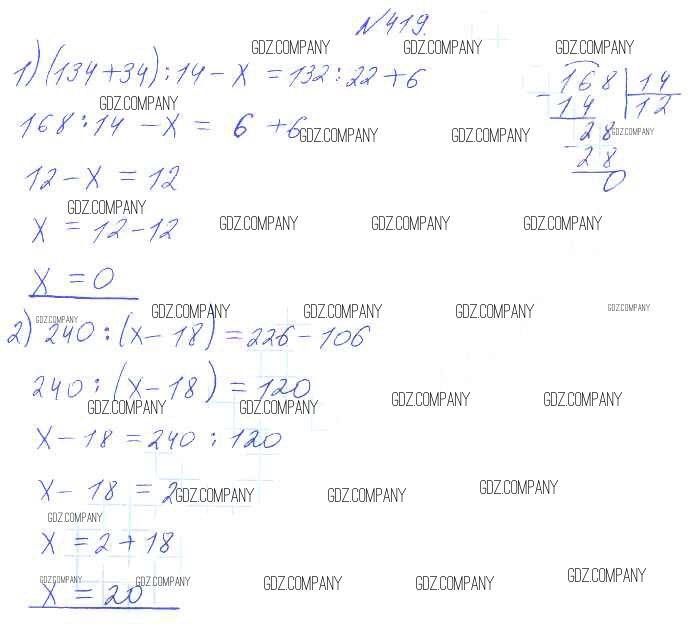 №419.
1) (134+34):14-x=132:22+6
168:14-x=6+6
12-x=12
x=12-12
x=0
168 | 14
- 14 | 12
28
- 28
0
2) 240:(x-18)=226-106
240:(x-18)=120
x-18=240:120
x-18=2
x=2+18
x=20
GDZ.COMPANY GDZ.COMPANY GDZ.COMPANY
GDZ.COMPANY
GDZ.COMPANY GDZ.COMPANY GDZ.COMPANY
GDZ.COMPANY
GDZ.COMPANY GDZ.COMPANY GDZ.COMPANY
GDZ.COMPANY GDZ.COMPANY GDZ.COMPANY GDZ.COMPANY
GDZ.COMPANY
GDZ.COMPANY GDZ.COMPANY GDZ.COMPANY GDZ.COMPANY
GDZ.COMPANY GDZ.COMPANY GDZ.COMPANY
GDZ.COMPANY
GDZ.COMPANY GDZ.COMPANY GDZ.COMPANY GDZ.COMPANY GDZ.COMPANY